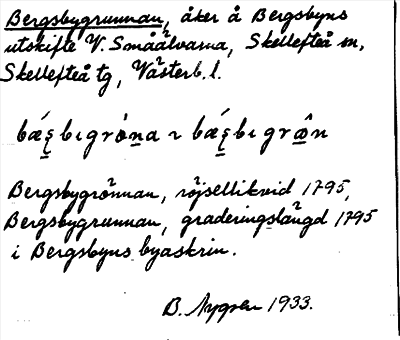 Bergsbygrunnan, åker å Bergsbyns
utskifte V. Småälvarna, Skellefteå sn,
Skellefteå tg, Västerb. l.
bǽs̱bıgrònạ ı bǽs̱bıgræ̂n
Bergsbygrönnan, röjsellikvid 1795,
Bergsbygrunnan, graderingslängd 1795
i Bergsbyns byaskrin.
B. Nygren 1933.